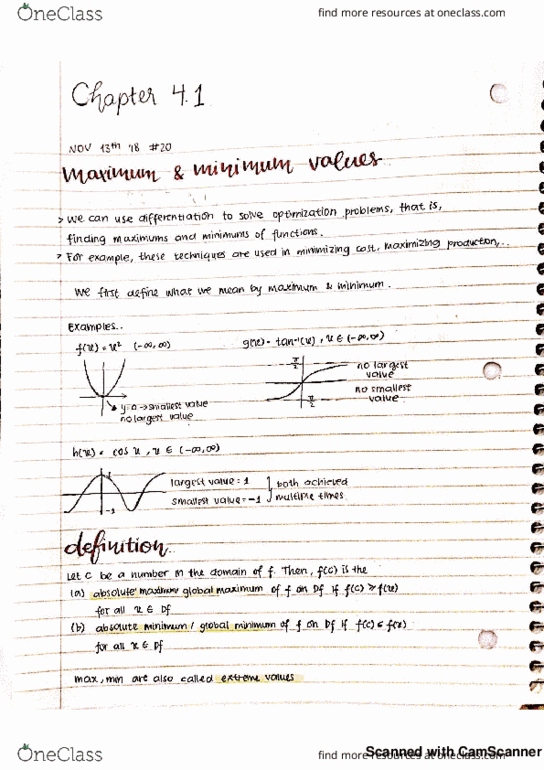 OneClass find more resources at oneclass.com
Chapter 4.1
NOV 13th '18 #20
Maximum & minimum values
> We can use differentiation to solve optimization problems, that is,
finding maximums and minimums of functions.
> For example, these techniques are used in minimizing cost, maximizing production,..
We first define what we mean by maximum & minimum.
Examples..
f(x) = x² (-∞,∞) g(x) = tan⁻¹(x), x ∈ (-∞,∞)
π/2 no largest
value
no smallest
value
π/2
y=0 → smallest value
no largest value
h(x) = cos x, x ∈ (-∞,∞)
1 largest value = 1 both achieved
-1 smallest value = -1 multiple times
definition..
Let c be a number in the domain of f. Then, f(c) is the
(a) absolute maximum global maximum of f on Df if f(c) ≥ f(x)
for all x ∈ Df
(b) absolute minimum / global minimum of f on Df if f(c) ≤ f(x)
for all x ∈ Df
max, min are also called extreme values
OneClass find more resources at oneclass.com
Scanned with CamScanner